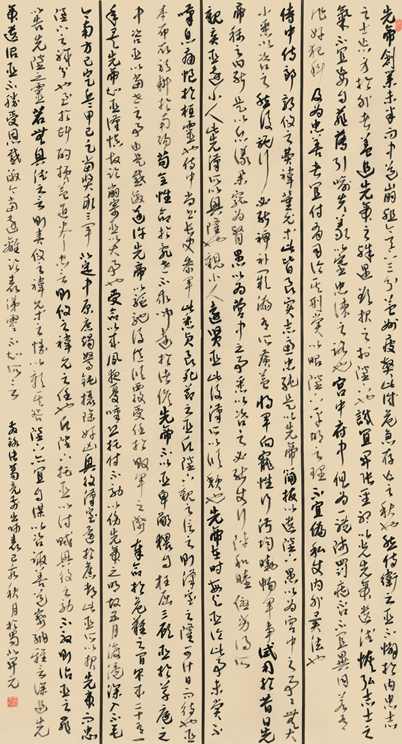 先帝創業未半而中道崩殂今天下三分益州疲弊此誠危急存亡之秋也然侍衛之臣不懈於內忠志
之士忘身於外者蓋追先帝之殊遇欲報之於陛下也誠宜開張聖聽以光先帝遺德恢弘志士之
氣不宜妄自菲薄引喻失義以塞忠諫之路也宮中府中俱為一體陟罰臧否不宜異同若有
作奸犯科及為忠善者宜付有司論其刑賞以昭陛下平明之理不宜偏私使內外異法也
侍中侍郎郭攸之費禕董允等此皆良實志慮忠純是以先帝簡拔以遺陛下愚以為宮中之事事無大
小悉以咨之然後施行必能裨補闕漏有所廣益將軍向寵性行淑均曉暢軍事試用於昔日先
帝稱之曰能是以眾議舉寵為督愚以為營中之事悉以咨之必能使行陣和睦優劣得所
親賢臣遠小人此先漢所以興隆也親小人遠賢臣此後漢所以傾頹也先帝在時每與臣論此事未嘗不
嘆息痛恨於桓靈也侍中尚書長史參軍此悉貞良死節之臣願陛下親之信之則漢室之隆可計日而待也臣
本布衣躬耕於南陽苟全性命於亂世不求聞達於諸侯先帝不以臣卑鄙猥自枉屈三顧臣於草廬之
中咨臣以當世之事由是感激遂許先帝以驅馳後值傾覆受任於敗軍之際奉命於危難之間爾來二十有一
年矣先帝知臣謹慎故臨崩寄臣以大事也受命以來夙夜憂嘆恐託付不效以傷先帝之明故五月渡瀘深入不毛
今南方已定兵甲已足當獎率三軍北定中原庶竭駑鈍攘除奸凶興復漢室還於舊都此臣所以報先帝而忠
陛下之職分也至於斟酌損益進盡忠言則攸之禕允之任也願陛下託臣以討賊興復之效不效則治臣之罪
以告先帝之靈若無興德之言則責攸之禕允等之慢以彰其咎陛下亦宜自謀以咨諏善道察納雅言深追先
帝遺詔臣不勝受恩感激今當遠離臨表涕零不知所云 右錄諸葛亮前出師表己亥秋月於蜀